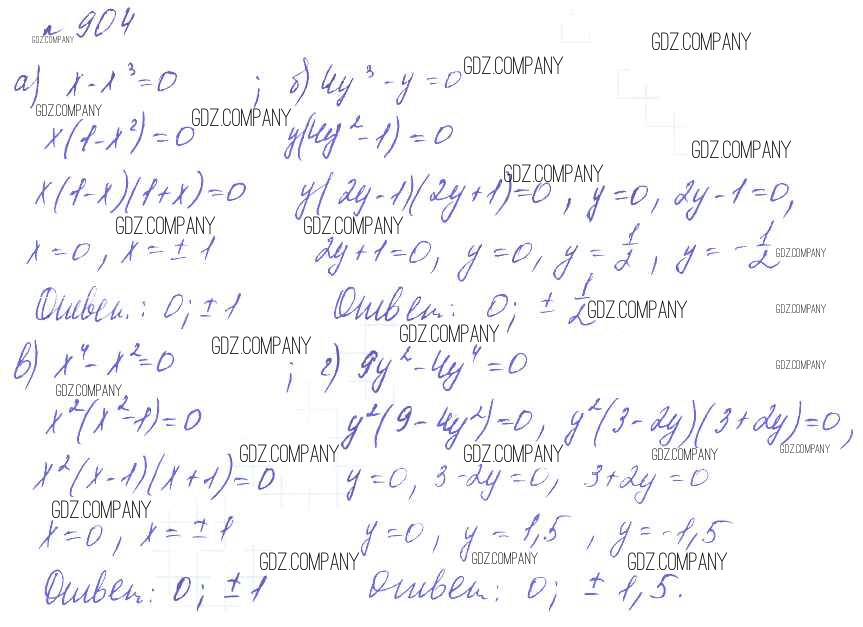 № 904
GDZ.COMPANY
GDZ.COMPANY
а) x - x³ = 0 ; б) 4y³ - y = 0
GDZ.COMPANY
GDZ.COMPANY
GDZ.COMPANY
x(1 - x²) = 0 y(4y² - 1) = 0
GDZ.COMPANY
GDZ.COMPANY
x(1-x)(1+x) = 0 y(2y-1)(2y+1) = 0, y = 0, 2y - 1 = 0,
GDZ.COMPANY
GDZ.COMPANY
x = 0, x = ± 1 2y + 1 = 0, y = 0, y = 1/2, y = - 1/2
GDZ.COMPANY
Ответ: 0; ± 1 Ответ: 0; ± 1/2
GDZ.COMPANY
GDZ.COMPANY
GDZ.COMPANY
GDZ.COMPANY
в) x⁴ - x² = 0 ; г) 9y² - 4y⁴ = 0
GDZ.COMPANY
GDZ.COMPANY
x²(x² - 1) = 0 y²(9 - 4y²) = 0, y²(3 - 2y)(3 + 2y) = 0,
GDZ.COMPANY
GDZ.COMPANY
GDZ.COMPANY
GDZ.COMPANY
x²(x - 1)(x + 1) = 0 y = 0, 3 - 2y = 0, 3 + 2y = 0
GDZ.COMPANY
x = 0, x = ± 1 y = 0, y = 1,5, y = -1,5
GDZ.COMPANY
GDZ.COMPANY
GDZ.COMPANY
Ответ: 0; ± 1 Ответ: 0; ± 1,5.